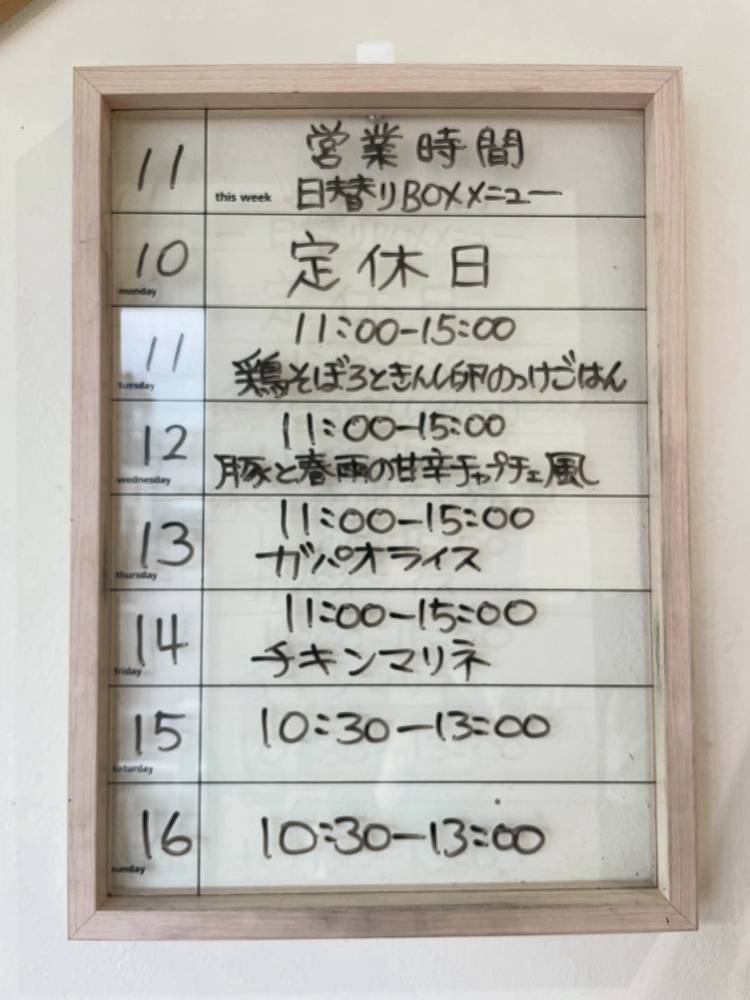 11
営業時間
this week
日替りBOXメニュー
10
monday
定休日
11
tuesday
11:00-15:00
鶏そぼろときんし卵のっけごはん
12
wednesday
11:00-15:00
豚と春雨の甘辛チャプチェ風
13
thursday
11:00-15:00
ガパオライス
14
friday
11:00-15:00
チキンマリネ
15
saturday
10:30-13:00
16
sunday
10:30-13:00